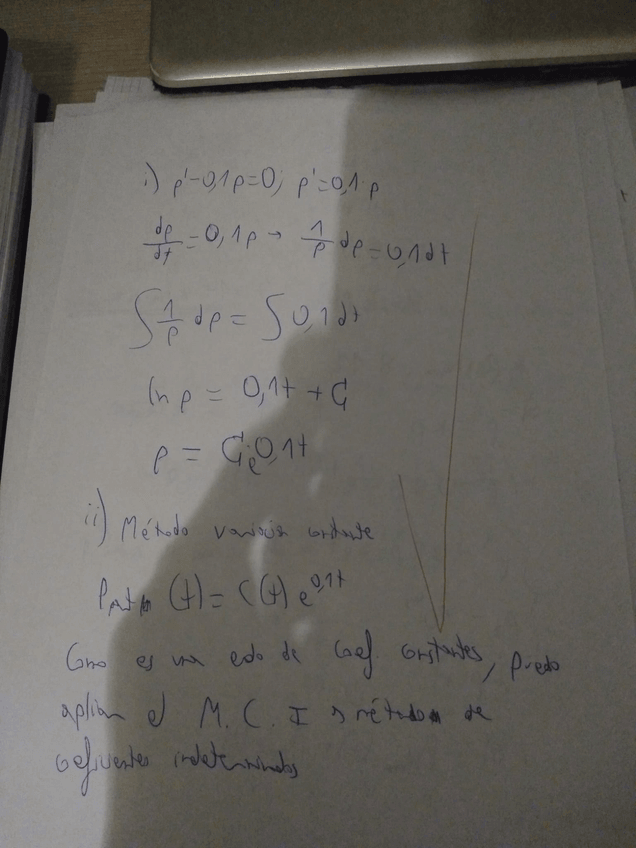 i) p'-0,1p=0; p'=0,1·p
dp/dt = 0,1p → 1/p dp = 0,1dt
∫ 1/p dp = ∫ 0,1dt
ln p = 0,1t + C₁
p = C₁e^0,1t
ii) Método variación constante
(t) = C(t) e^0,1t
Como es una edo de Coef. constantes, puedo
aplicar el M.C.I → método de
coeficientes indeterminados